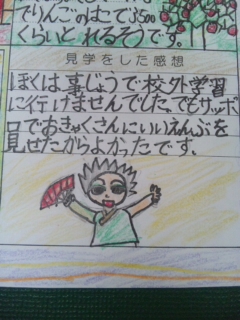 でりんごのはこで3500
くらいとれるそうです。
見学をした感想
ぼくは、事じょうで校外学習
に行けませんでした。でもサッポ
ロでおきゃくさんにいいえんぶを
見せたからよかったです。